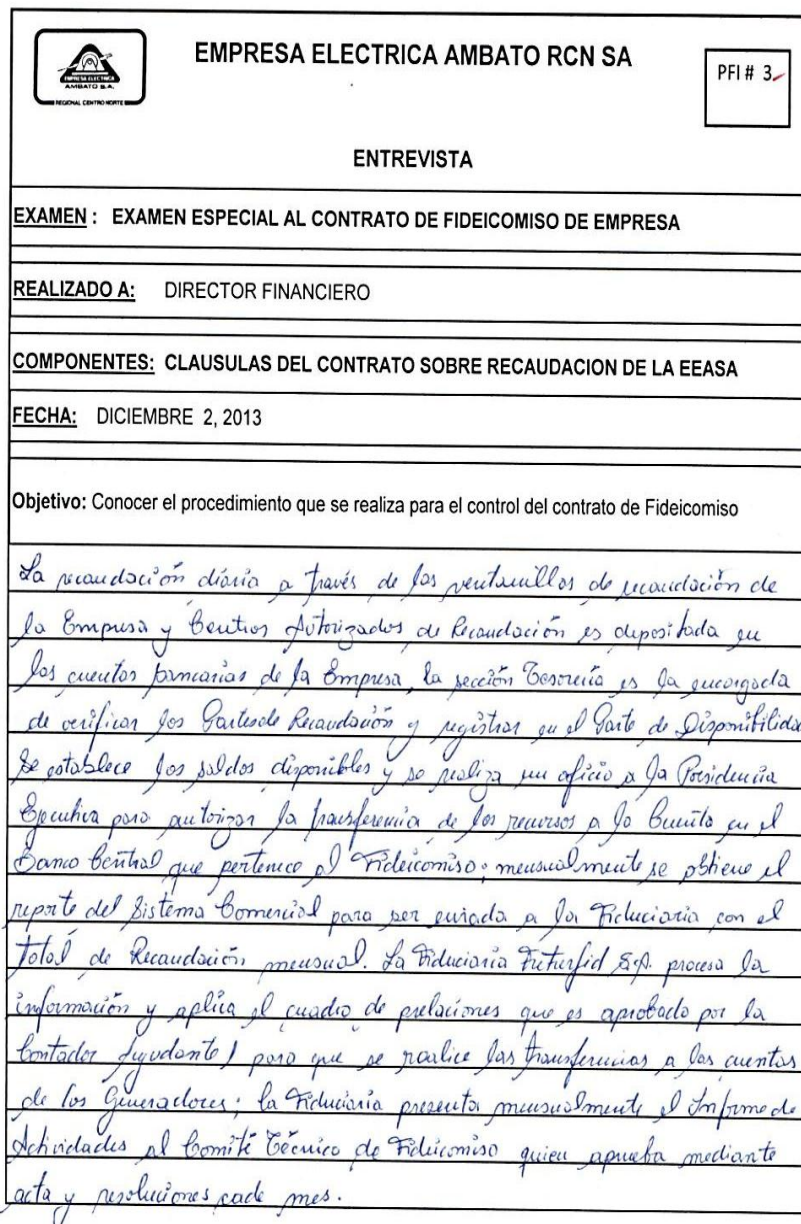 EMPRESA ELECTRICA
AMBATO S.A.
REGIONAL CENTRO NORTE
EMPRESA ELECTRICA AMBATO RCN SA
PFI # 3
ENTREVISTA
EXAMEN : EXAMEN ESPECIAL AL CONTRATO DE FIDEICOMISO DE EMPRESA
REALIZADO A: DIRECTOR FINANCIERO
COMPONENTES: CLAUSULAS DEL CONTRATO SOBRE RECAUDACION DE LA EEASA
FECHA: DICIEMBRE 2, 2013
Objetivo: Conocer el procedimiento que se realiza para el control del contrato de Fideicomiso
La recaudación diaria a través de las ventanillas de recaudación de
la Empresa y Centros Autorizados de Recaudación es depositada en
las cuentas bancarias de la Empresa, la sección Tesorería es la encargada
de verificar los Partes de Recaudación y registrar en el Parte de Disponibilida
Se establece los saldos disponibles y se realiza un oficio a la Presidencia
Ejecutiva para autorizar la transferencia de los recursos a la Cuenta en el
Banco Central que pertenece al Fideicomiso; mensualmente se obtiene el
reporte del Sistema Comercial para ser enviada a la Fiduciaria con el
Total de Recaudación mensual. La Fiduciaria Futurfid S.A. procesa la
información y aplica el cuadro de prelaciones que es aprobado por la
Contador Ayudante 1 para que se realice las transferencias a las cuentas
de los Generadores; la Fiduciaria presenta mensualmente el Informe de
Actividades al Comité Técnico de Fideicomiso quien aprueba mediante
acta y resoluciones cada mes.